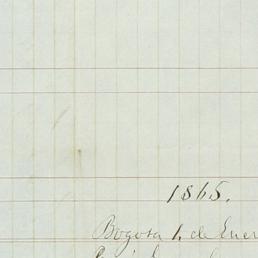 1865.
Bogota 1. de Ener